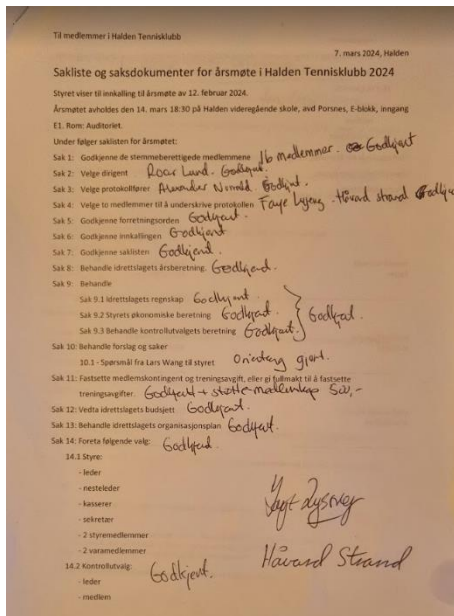 Til medlemmer i Halden Tennisklubb
7. mars 2024, Halden
Sakliste og saksdokumenter for årsmøte i Halden Tennisklubb 2024
Styret viser til innkalling til årsmøte av 12. februar 2024.
Årsmøtet avholdes den 14. mars 18:30 på Halden videregående skole, avd Porsnes, E-blokk, inngang
E1. Rom: Auditoriet.
Under følger saklisten for årsmøtet:
Sak 1: Godkjenne de stemmeberettigede medlemmene 16 medlemmer. Godkjent
Sak 2: Velge dirigent Roar Lund. Godkjent.
Sak 3: Velge protokollfører Alexander Godkjent.
Sak 4: Velge to medlemmer til å underskrive protokollen Håvard Strand
Sak 5: Godkjenne forretningsorden Godkjent.
Sak 6: Godkjenne innkallingen Godkjent
Sak 7: Godkjenne saklisten Godkjent.
Sak 8: Behandle idrettslagets årsberetning. Godkjent.
Sak 9: Behandle
Sak 9.1 Idrettslagets regnskap Godkjent.
Sak 9.2 Styrets økonomiske beretning Godkjent. Godkjent.
Sak 9.3 Behandle kontrollutvalgets beretning Godkjent.
Sak 10: Behandle forslag og saker
10.1 - Spørsmål fra Lars Wang til styret Orientering gjort.
Sak 11: Fastsette medlemskontingent og treningsavgift, eller gi fullmakt til å fastsette
treningsavgifter. Godkjent + støtte-medlemskap 500,-
Sak 12: Vedta idrettslagets budsjett Godkjent.
Sak 13: Behandle idrettslagets organisasjonsplan Godkjent.
Sak 14: Foreta følgende valg: Godkjent.
14.1 Styre:
- leder
- nesteleder
- kasserer
- sekretær
- 2 styremedlemmer
- 2 varamedlemmer
Håvard Strand
14.2 Kontrollutvalg: Godkjent.
- leder
- medlem